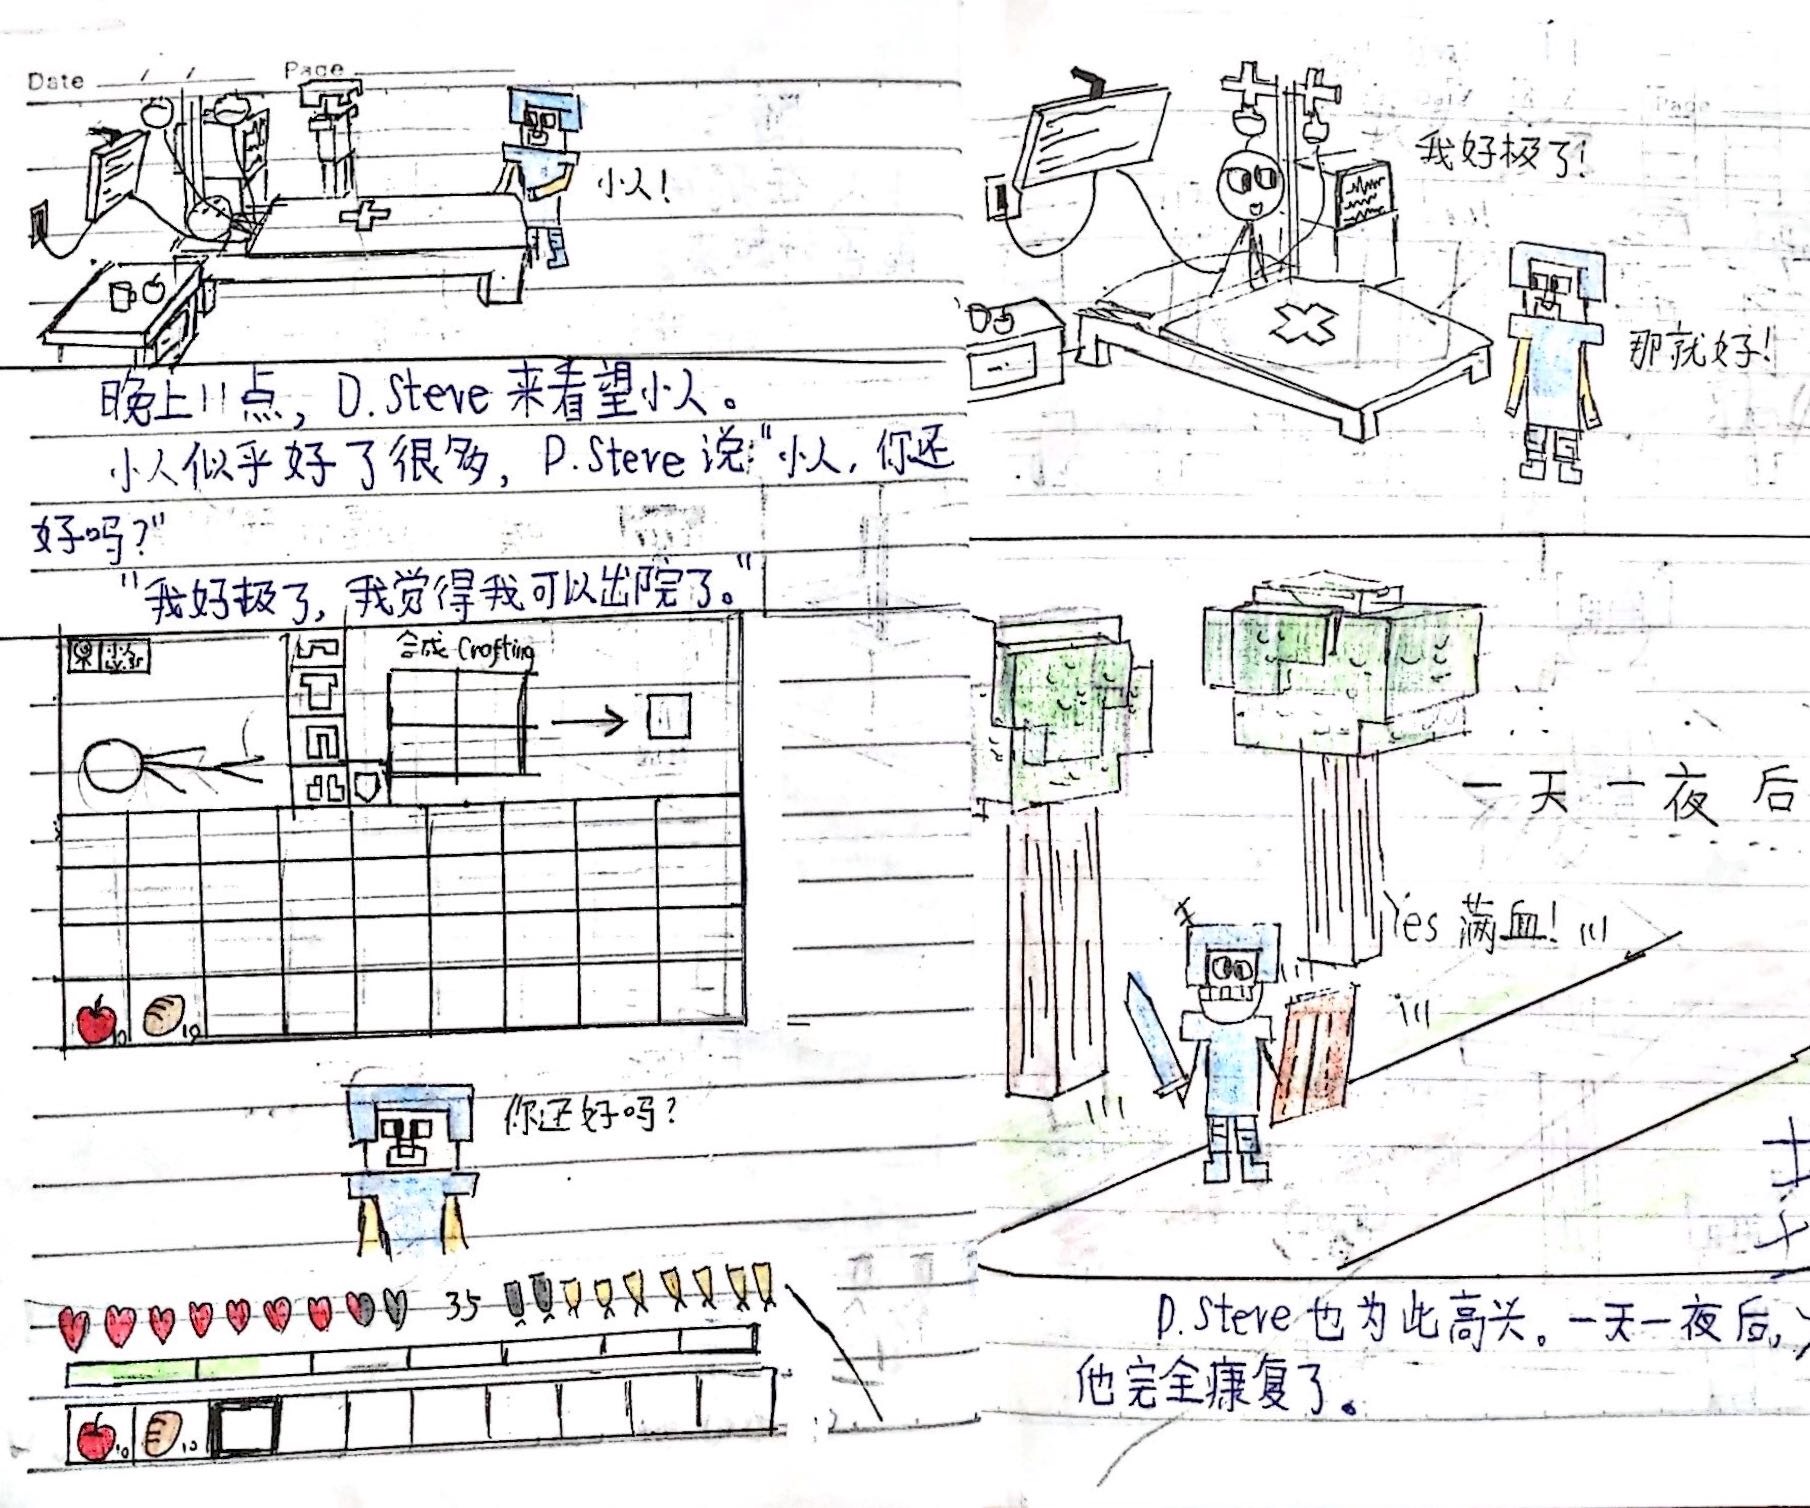 Date / / Page
小人！
晚上11点，D.Steve来看望小人。
小人似乎好了很多，D.Steve说："小人，你还
好吗？"
"我好极了，我觉得我可以出院了。"
小人
合成 Crafting
10 10
你还好吗？
35
10 10
我好极了！
那就好！
一天一夜后
Yes 满血！
D.Steve也为此高兴。一天一夜后，
他完全康复了。